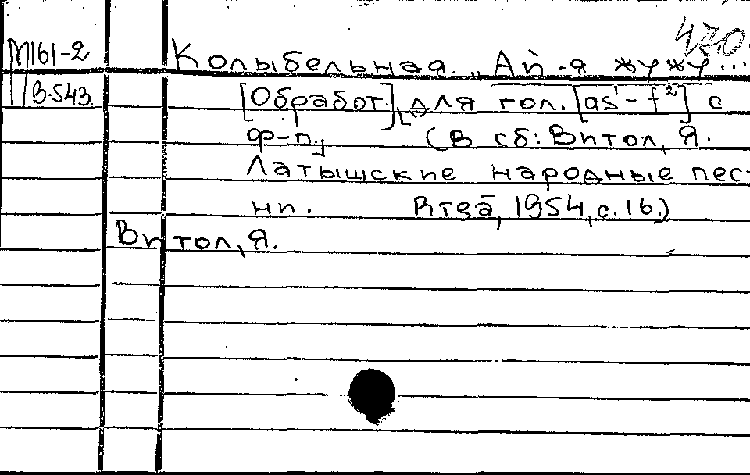 470.
М161-2
В-543.
Колыбельная. „Ай-я жужу...
[Обработ.] для гол. [as¹-f²] с
ф-п. (В сб: Витол, Я.
Латышские народные пес-
ни. Рига, 1954, с.16.)
Витол, Я.